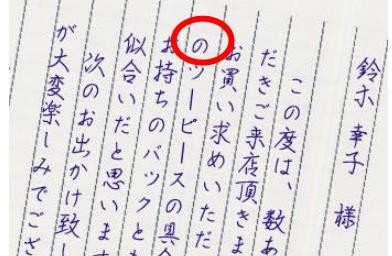 鈴木 幸子 様
この度は、数あ
だきご来店頂きま
お買い求めいただ
のツーピースの具合
お持ちのバックとも
似合いだと思います
次のお出かけ致し
が大変楽しみでござ